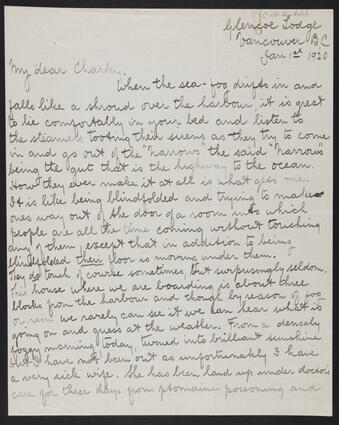 Glencoe Lodge
Vancouver BC
Jan 1st 1920
My dear Charles.
When the sea-fog drifts in and
falls like a shroud over the harbour, it is great
to lie comfortably in your bed and listen to
the steamers tooting their sirens as they try to come
in and go out of the "narrows" the said "narrows"
being the gut that is the highway to the ocean.
How they ever make it at all is what gets me.
It is like being blindfolded and trying to make
ones way out of the door of a room into which
people are all the time coming without touching
any of them, except that in addition to being
blindfolded their floor is moving under them.
They do touch of course sometimes but surprisingly seldom.
This house where we are boarding is about three
blocks from the harbour and though by reason of fog
or rain we rarely can see it we can hear what is
going on and guess at the weather. From a densely
foggy morning today, turned into brilliant sunshine
but I have not been out as unfortunately I have
a very sick wife. She has been laid up under doctors
care for three days from ptomaine poisoning and